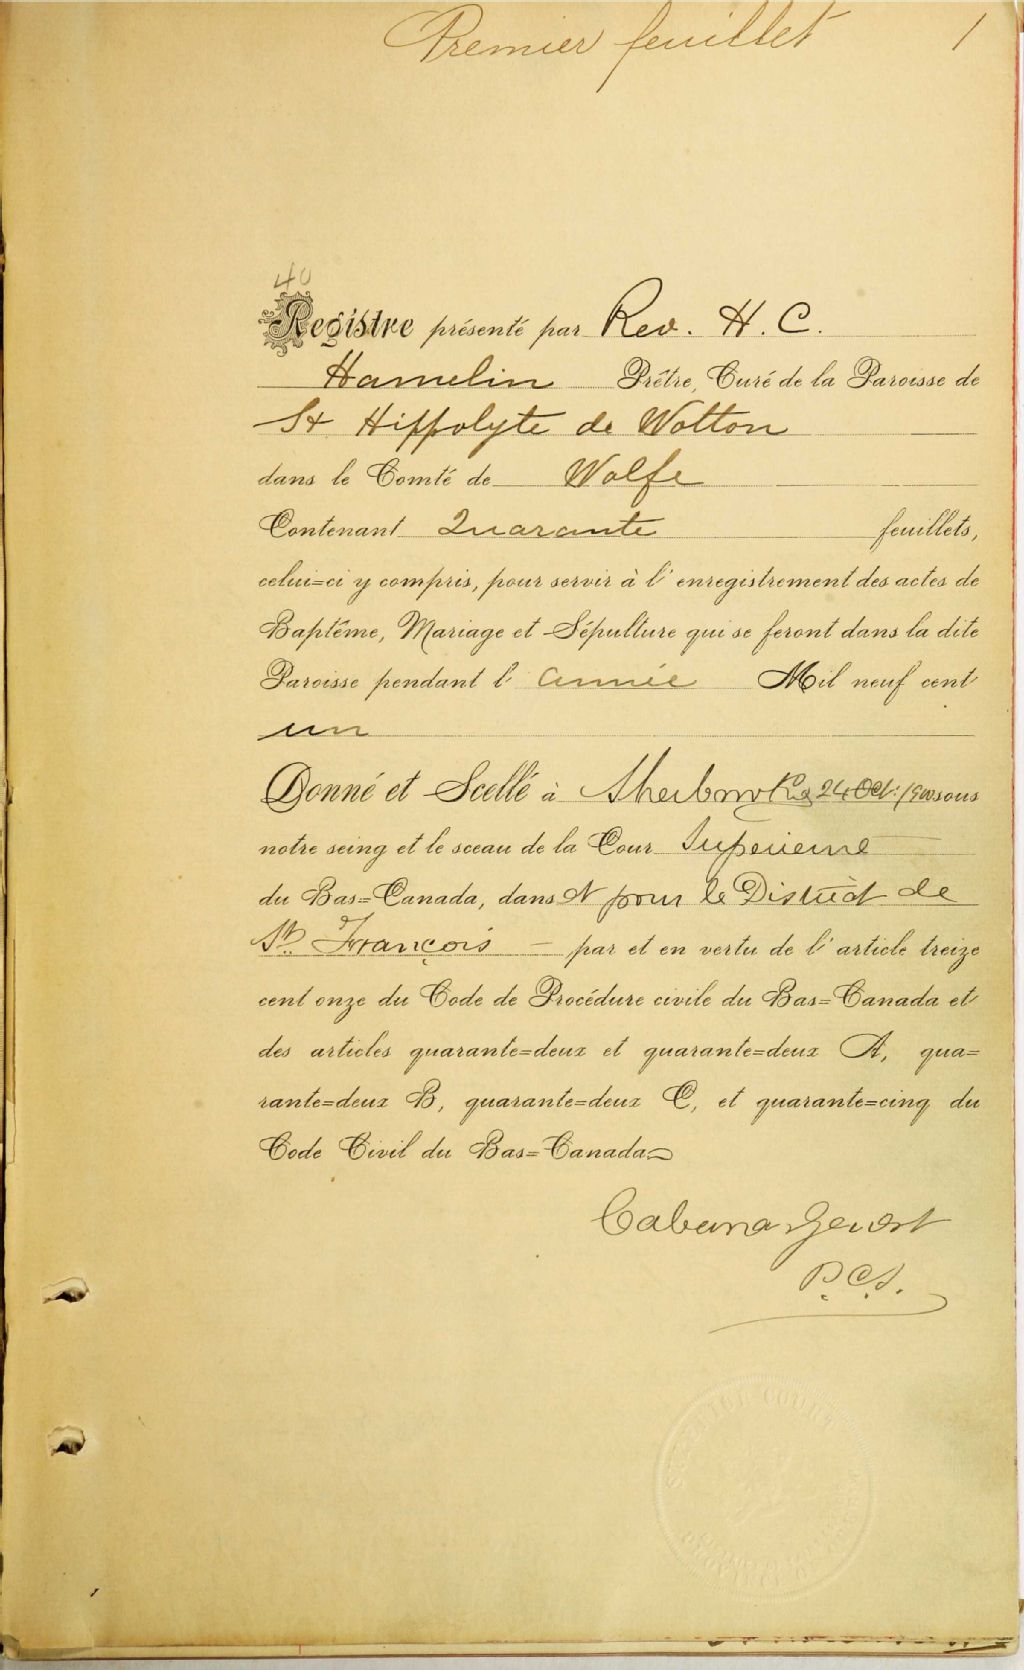 Premier feuillet 1
40
Registre présenté par Rev. H. C.
Hamelin Prêtre, Curé de la Paroisse de
St Hippolyte de Wotton
dans le Comté de Wolfe
Contenant Quarante feuillets,
celui=ci y compris, pour servir à l'enregistrement des actes de
Baptême, Mariage et Sépulture qui se feront dans la dite
Paroisse pendant l'année Mil neuf cent
un
Donné et Scellé à Sherbrooke 24 Oct. 1900 sous
notre seing et le sceau de la Cour Superieure
du Bas=Canada, dans et pour le District de
St. François — par et en vertu de l'article treize
cent onze du Code de Procédure civile du Bas=Canada et
des articles quarante=deux et quarante=deux A, qua=
rante=deux B, quarante=deux C, et quarante=cinq du
Code Civil du Bas=Canada=
Cabana
P.C.S.
SUPERIOR COURT